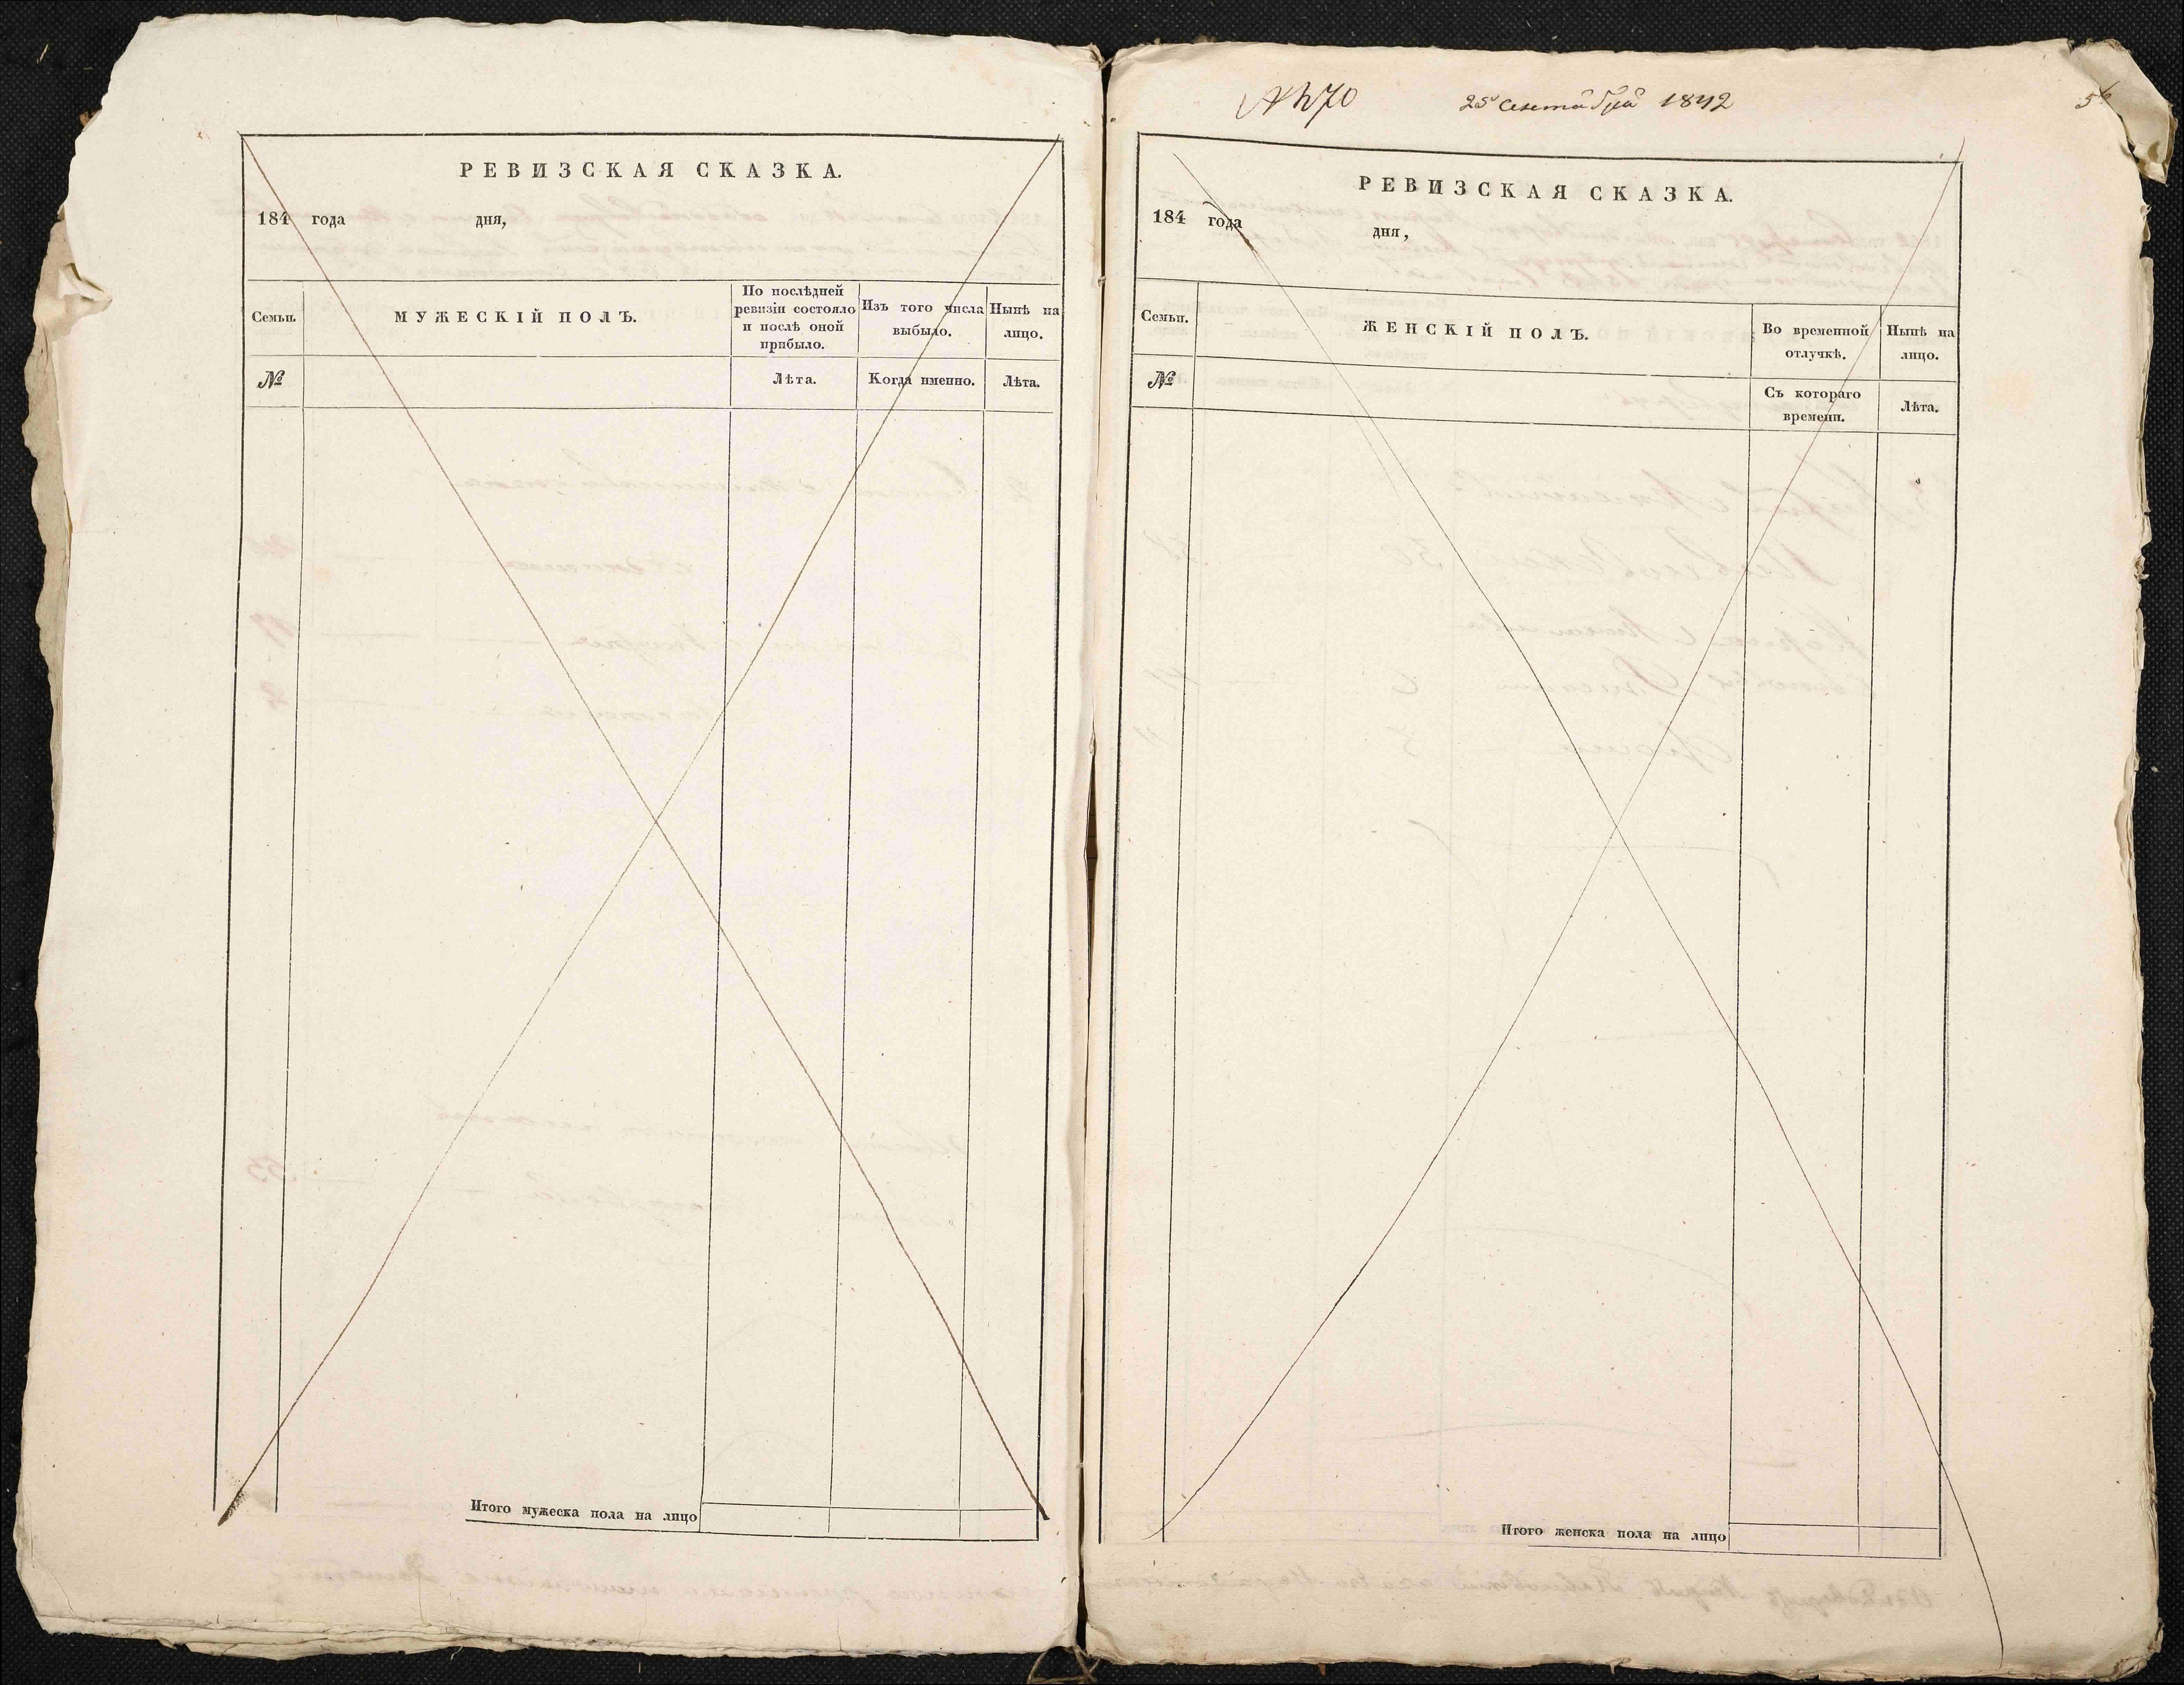 РЕВИЗСКАЯ СКАЗКА.
184 года дня,
Семьи.
МУЖЕСКІЙ ПОЛЪ.
По послѣдней
ревизіи состояло
и послѣ оной
прибыло.
Изъ того числа
выбыло.
Нынѣ на
лицо.
№
Лѣта.
Когда именно.
Лѣта.
Итого мужеска пола на лицо
25 Сентября 1842
РЕВИЗСКАЯ СКАЗКА.
184 года дня,
Семьи.
ЖЕНСКІЙ ПОЛЪ.
Во временной
отлучкѣ.
Нынѣ на
лицо.
№
Съ котораго
времени.
Лѣта.
Итого женска пола на лицо